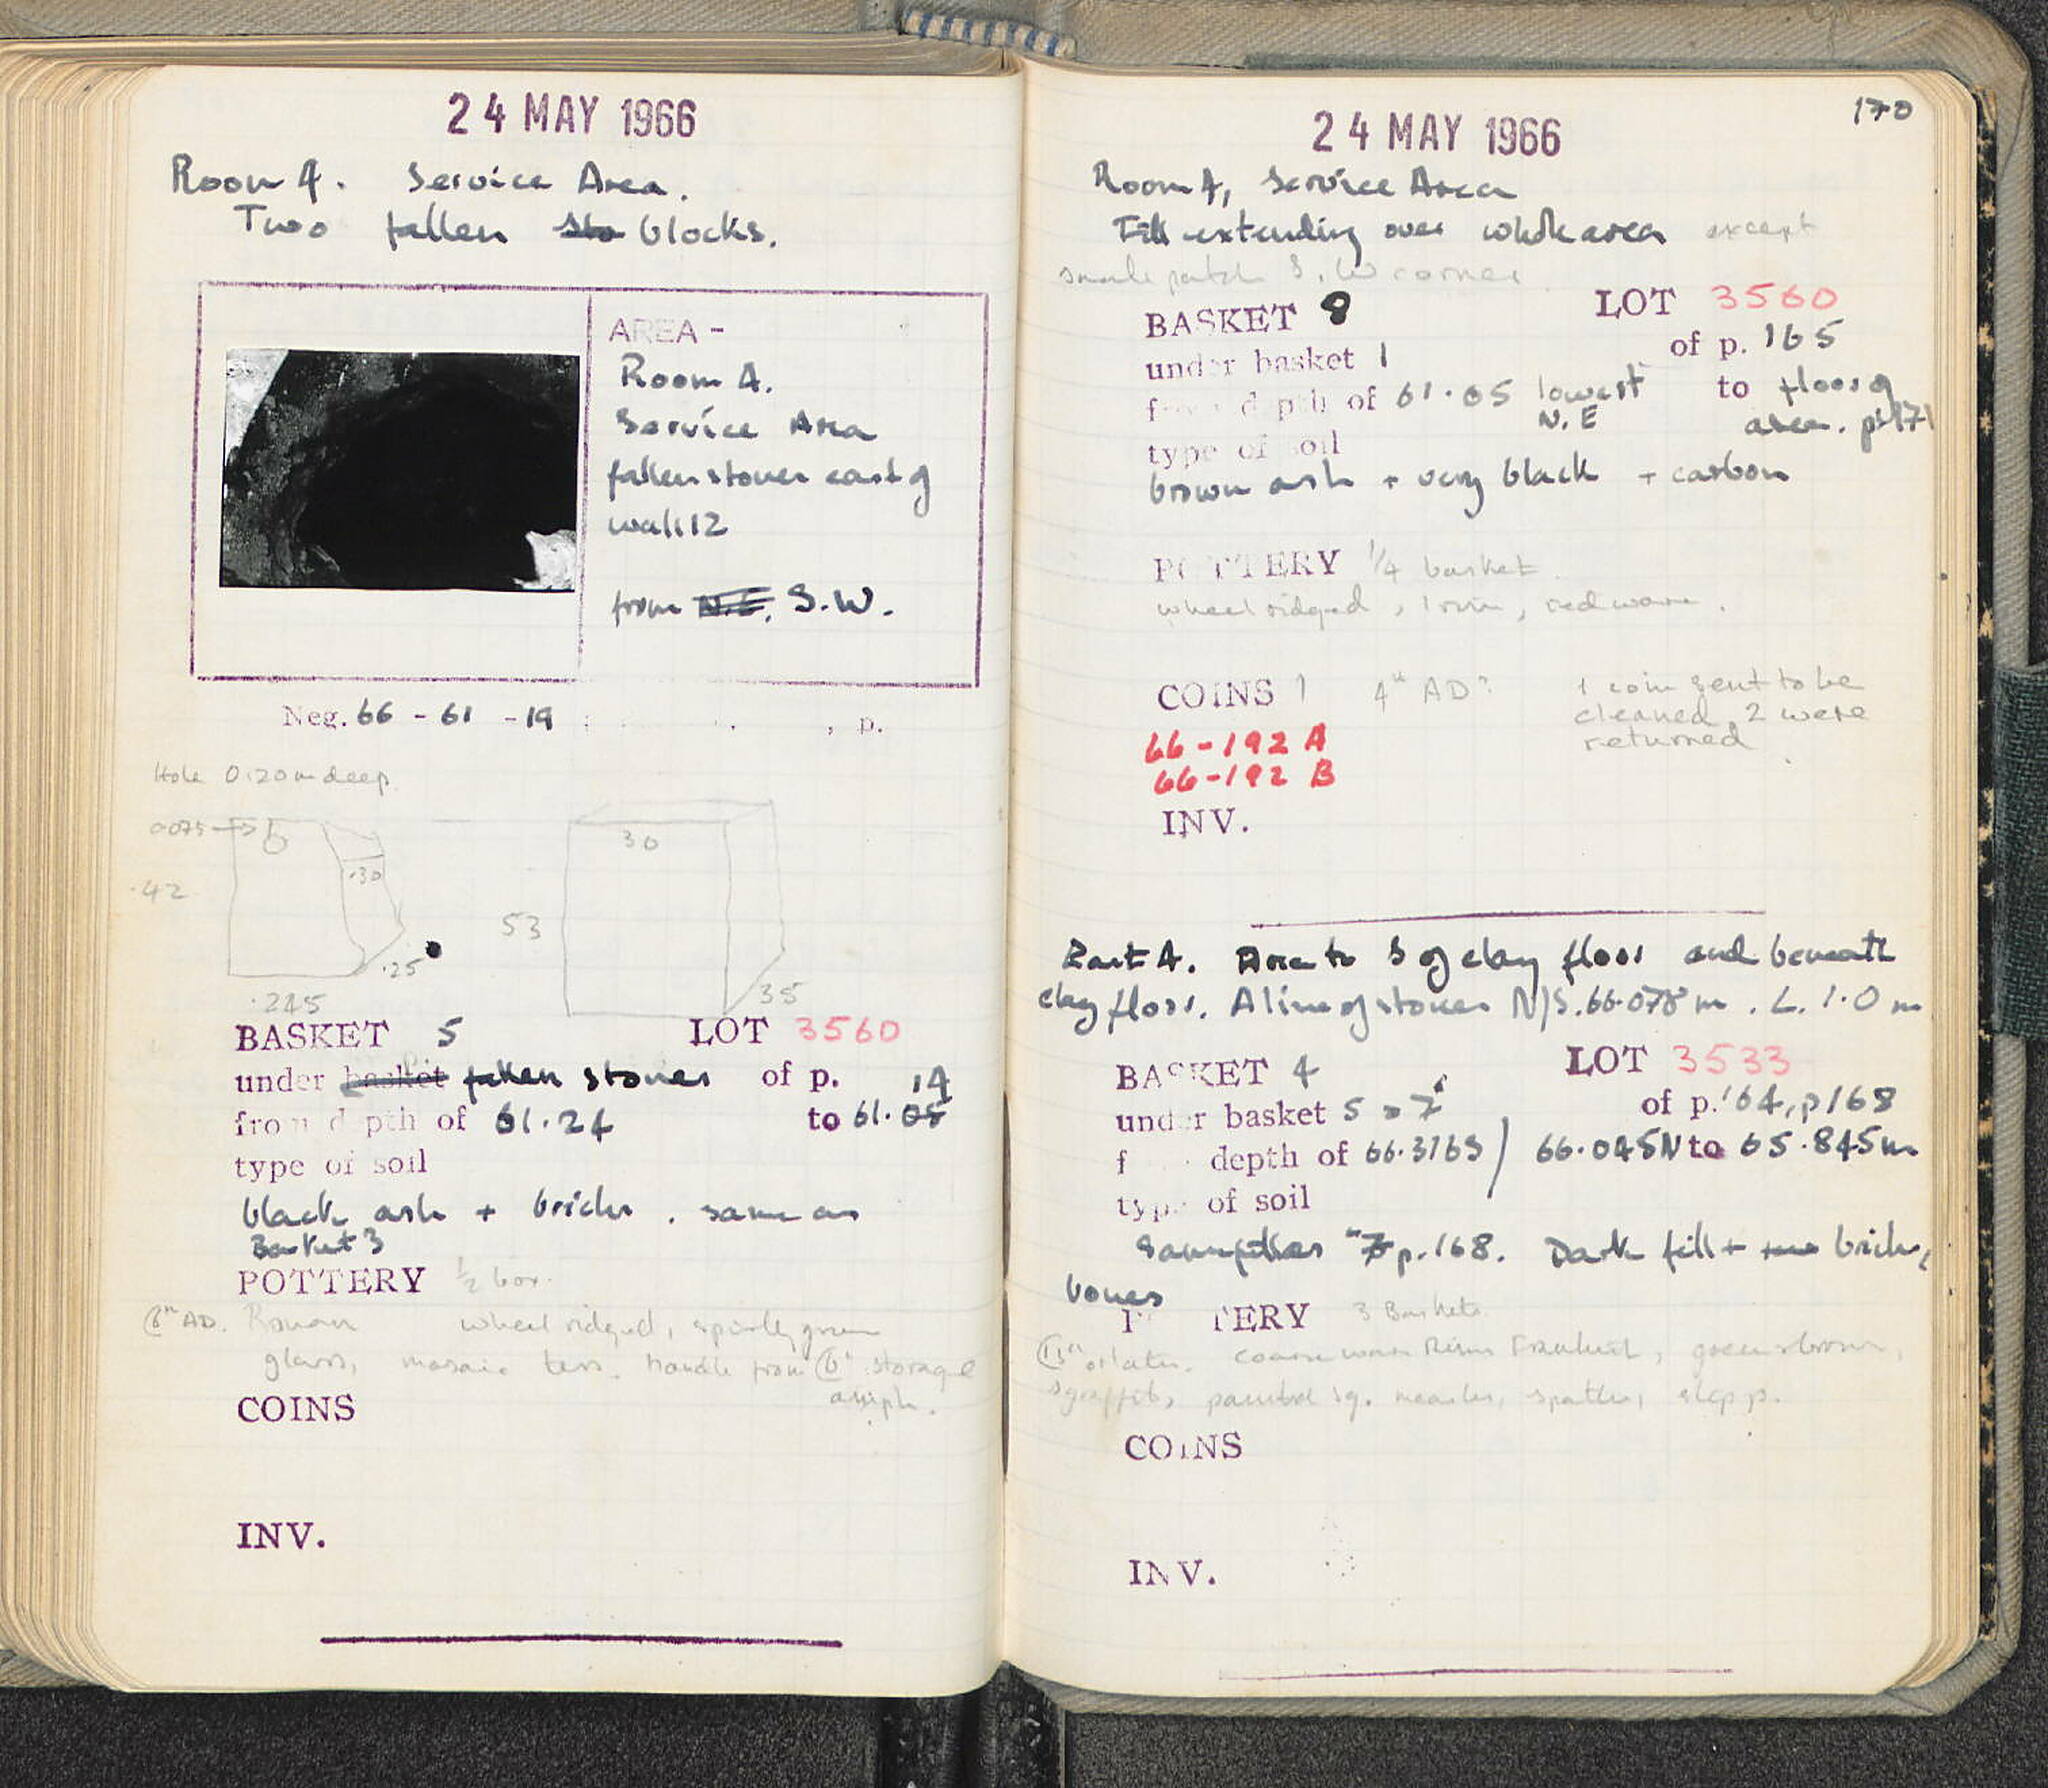 24 MAY 1966
Room 4. Service Area.
Two fallen sto blocks.
AREA -
Room 4.
Service Area
fallen stones east of
wall 12
from N.E. S.W.
Neg. 66 - 61 - 19 , p.
Hole 0.20m deep.
0.075
.42
.30
.25
.245
30
53
35
BASKET 5 LOT 3560
under basket fallen stones of p.
from depth of 61.24 to 61.05
type of soil
black ash + bricks. same as
Basket 3
POTTERY 1/2 box.
6th AD. Roman wheel ridged, green
glass, mosaic tess. handle from 6th storage
amph.
COINS
INV.
170
24 MAY 1966
Room 4, Service Area
Fill extending over whole area except
small patch S.W corner
BASKET 8 LOT 3560
under basket 1 of p. 165
from depth of 61.05 lowest N.E to floor of
area. p. 171
type of soil
brown ash + very black + carbon
POTTERY 1/4 basket.
wheel ridged, 1 rim, red ware.
COINS 1 4th AD? 1 coin sent to be
cleaned, 2 were
returned
66-192 A
66-192 B
INV.
East 4. Area to S of clay floor and beneath
clay floor. A line of stones N/S. 66.078 m. L. 1.0 m
BASKET 4 LOT 3533
under basket 5 7 of p. 164, p168
from depth of 66.316S / 66.045N to 65.845m
type of soil
p.168. Dark fill + bricks,
bones
POTTERY 3 Baskets
or later. coarse ware green + brown,
sgraffito, painted sg. measles, spatter, slip p.
COINS
INV.